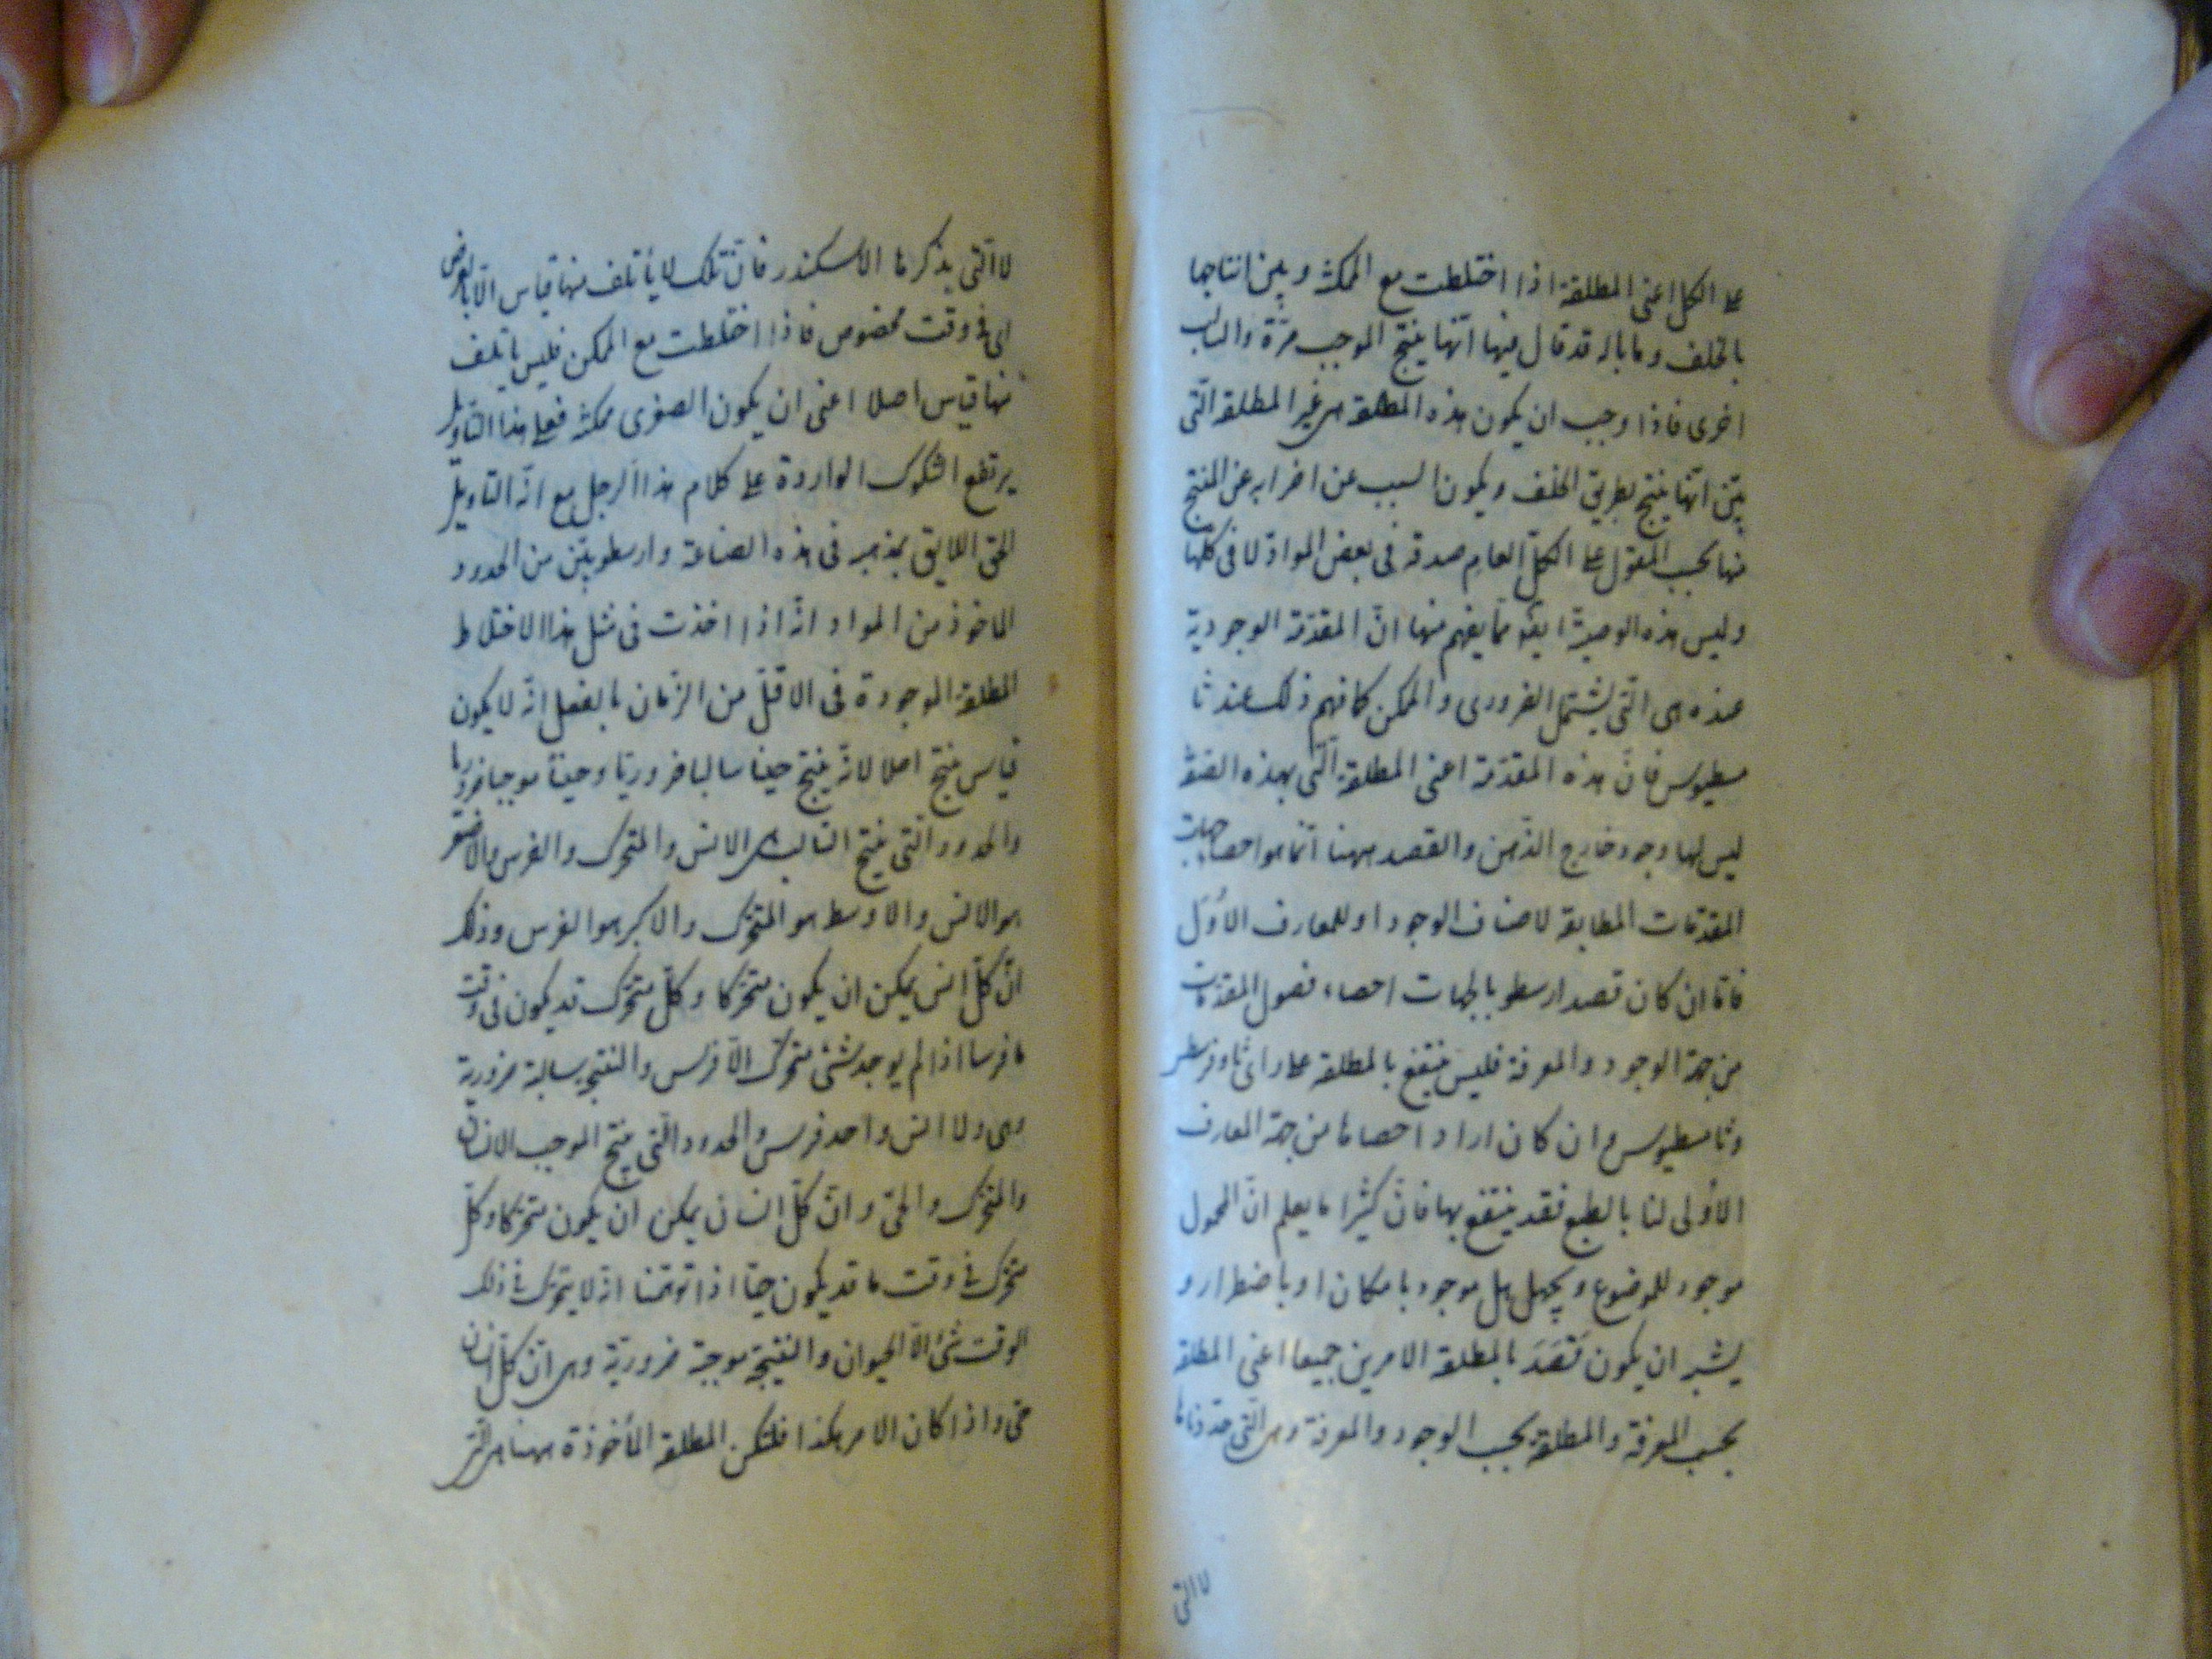 على الكل اعنى المطلقة اذا اختلطت مع الممكنة وبين انتاجها
بالخلف وما باله قد قال فيها انها ينتج الموجب مرّة والسالب
اخرى فاذا وجب ان يكون هذه المطلقة هى غير المطلقة التى
بيّن انّها ينتج بطريق الخلف ويكون السبب عن اضرابه عن المنتج
منها بحسب المقول على الكلّ العام صدقه فى بعض الموادّ لا فى كلّها
وليس هذه الوصيّة ايضا ممّا يفهم منها انّ المقدّمة الوجوديّة
عنده هى الّتى يشتمل الضرورى والممكن كما فهم ذلك عند ثا
مسطيوس فانّ هذه المقدّمة اعنى المطلقة الّتى بهذه الصّفة
ليس لها وجود خارج الذّهن والقصد ههنا انّما هو احصاء جهات
المقدّمات المطابقة لاصناف الوجود او للمعارف الأُوَل
فامّا ان كان قصد ارسطو بالجهات احصاء فصول المقدّمات
من جهة الوجود والمعرفة فليس ينتفع بالمطلقة على رأى ثاوفرسطس
وثامسطيوس وان كان اراد احصاءها من جهة المعارف
الأولى لنا بالطبع فقد ينتفع بها فانّ كثيرا ما يعلم انّ المحمول
موجود للموضوع ويجهل هل موجود بامكان او باضطرار و
يشبه ان يكون قَصَدَ بالمطلقة الامرين جميعا اعنى المطلقة
بحسب المعرفة والمطلقة بحسب الوجود والمعرفة وهى الّتى حدّدناها
لا التى
لا الّتى يذكرها الاسكندر فانّ تلك لا يأتلف منها قياس الّا بالعرض
اى فى وقت مخصوص فاذا اختلطت مع الممكن فليس ياتلف
منها قياس اصلا اعنى ان يكون الصغرى ممكنة فعلى هذا التأويل
يرتفع الشكوك الواردة على كلام هذا الرجل مع انّه التاويل
الحق اللايق بمذهبه فى هذه الصناعة وارسطو يبيّن من الحدود
الماخوذ من المواد انّه اذا اخذت فى مثل هذا الاختلاط
المطلقة الموجودة فى الاقلّ من الزّمان بالفعل انّه لا يكون
قياس منتج اصلا لانّه ينتج حينا سالبا ضروريّا وحينا موجبا ضروريا
والحدود الّتى ينتج السّالب هى الانس والمتحرّك والفرس فالاصغر
هو الانس والاوسط هو المتحرّك والاكبر هو الفرس وذلك
انّ كلّ انس يمكن ان يكون متحرّكا وكلّ متحرّك قد يكون فى وقت
ما فرسا اذا لم يوجد شئ متحرّك الّا فرس والنتيجة سالبة ضرورية
وهى ولا انس واحد فرس والحدود الّتى ينتج الموجب الانسان
والمتحرّك والحىّ وانّ كلّ انسان يمكن ان يكون متحرّكا وكلّ
متحرّك فى وقت ما قد يكون حيّا اذا توهّمنا انّه لا يتحرّك فى ذلك
الوقت شئ الّا الحيوان والنتيجة موجبة ضروريّة وهى انّ كلّ انسان
حىّ واذا كان الامر هكذا فلتكن المطلقة المأخوذة ههنا هى الّتى